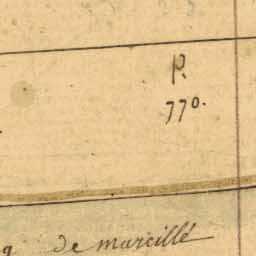 p.
770.
de marcillé